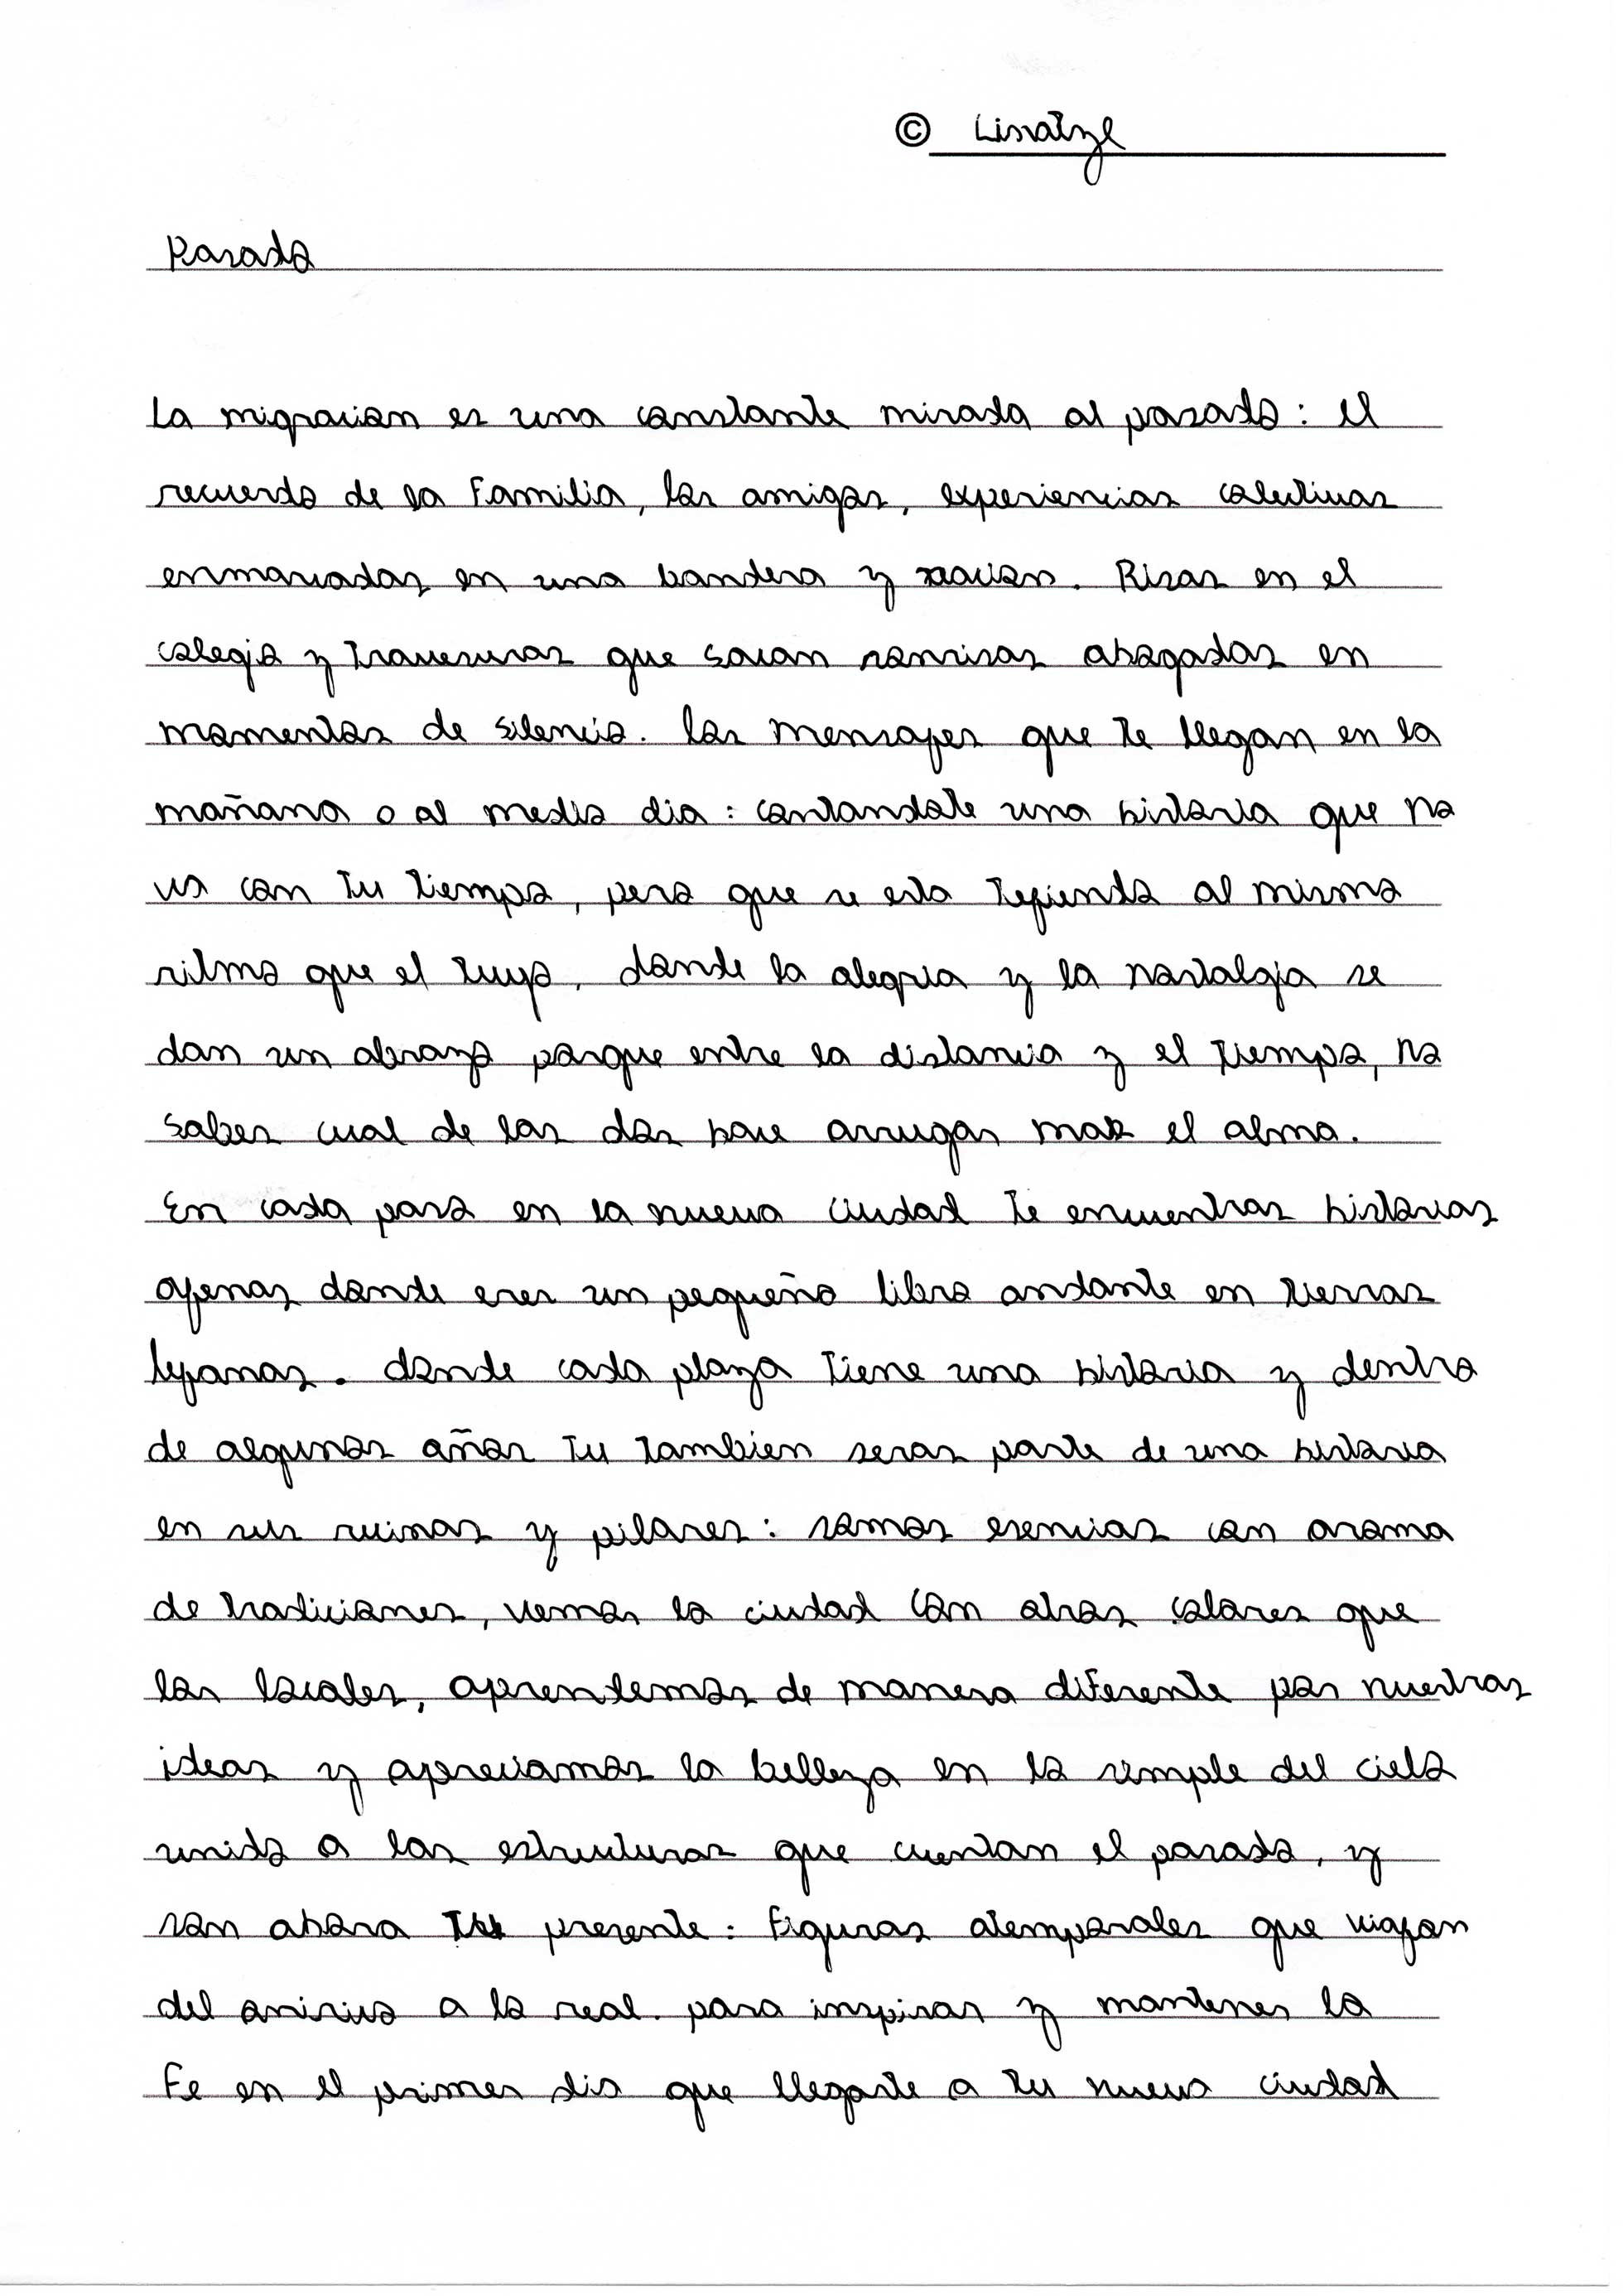 © Linatze
Pasado
La migracion es una constante mirada al pasado: el
recuerdo de la Familia, los amigos, experiencias colectivas
enmarcadas en una bandera y nacion. Risas en el
colegio y Travesuras que sacan sonrisas ahogadas en
momentos de silencio. los mensajes que te llegan en la
mañana o al medio dia: contandote una historia que no
va con tu tiempo, pero que se esta tejiendo al mismo
ritmo que el tuyo, donde la alegria y la nostalgia se
dan un abrazo porque entre la distancia y el tiempo, no
sabes cual de los dos hace arrugar mas el alma.
En cada paso en la nueva ciudad te encuentras historias
ajenas donde eres un pequeño libro andante en tierras
lejanas. donde cada plaza tiene una historia y dentro
de algunos años tu tambien seras parte de una historia
en sus ruinas y pilares: somos esencias con aroma
de tradiciones, vemos la ciudad con otros colores que
los locales, aprendemos de manera diferente por nuestras
ideas y apreciamos la belleza en lo simple del cielo
unido a las estructuras que cuentan el pasado, y
son ahora tu presente: Figuras atemporales que viajan
del onirico a lo real. para inspirar y mantener la
Fe en el primer dia que llegaste a tu nueva ciudad